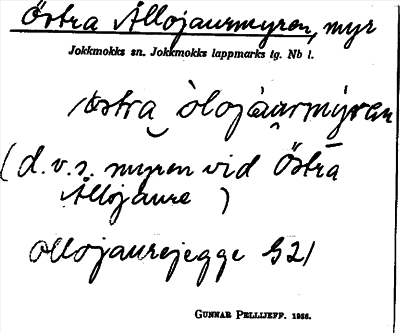 Östra Ållojaurmyren, myr
Jokkmokks sn. Jokkmokks lappmarks tg. Nb l.
östra òlojàurmýran
(d.v.s. myren vid Östra
Ållojaure)
ollojaurejegge G21
GUNNAR PELLIJEFF. 1956.